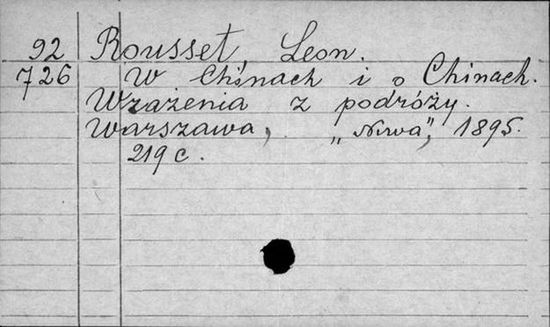 92 Rousset Leon.
726 W Chinach i o Chinach.
Wrażenia z podróży.
Warszawa, „Niwa”, 1895.
219 c.